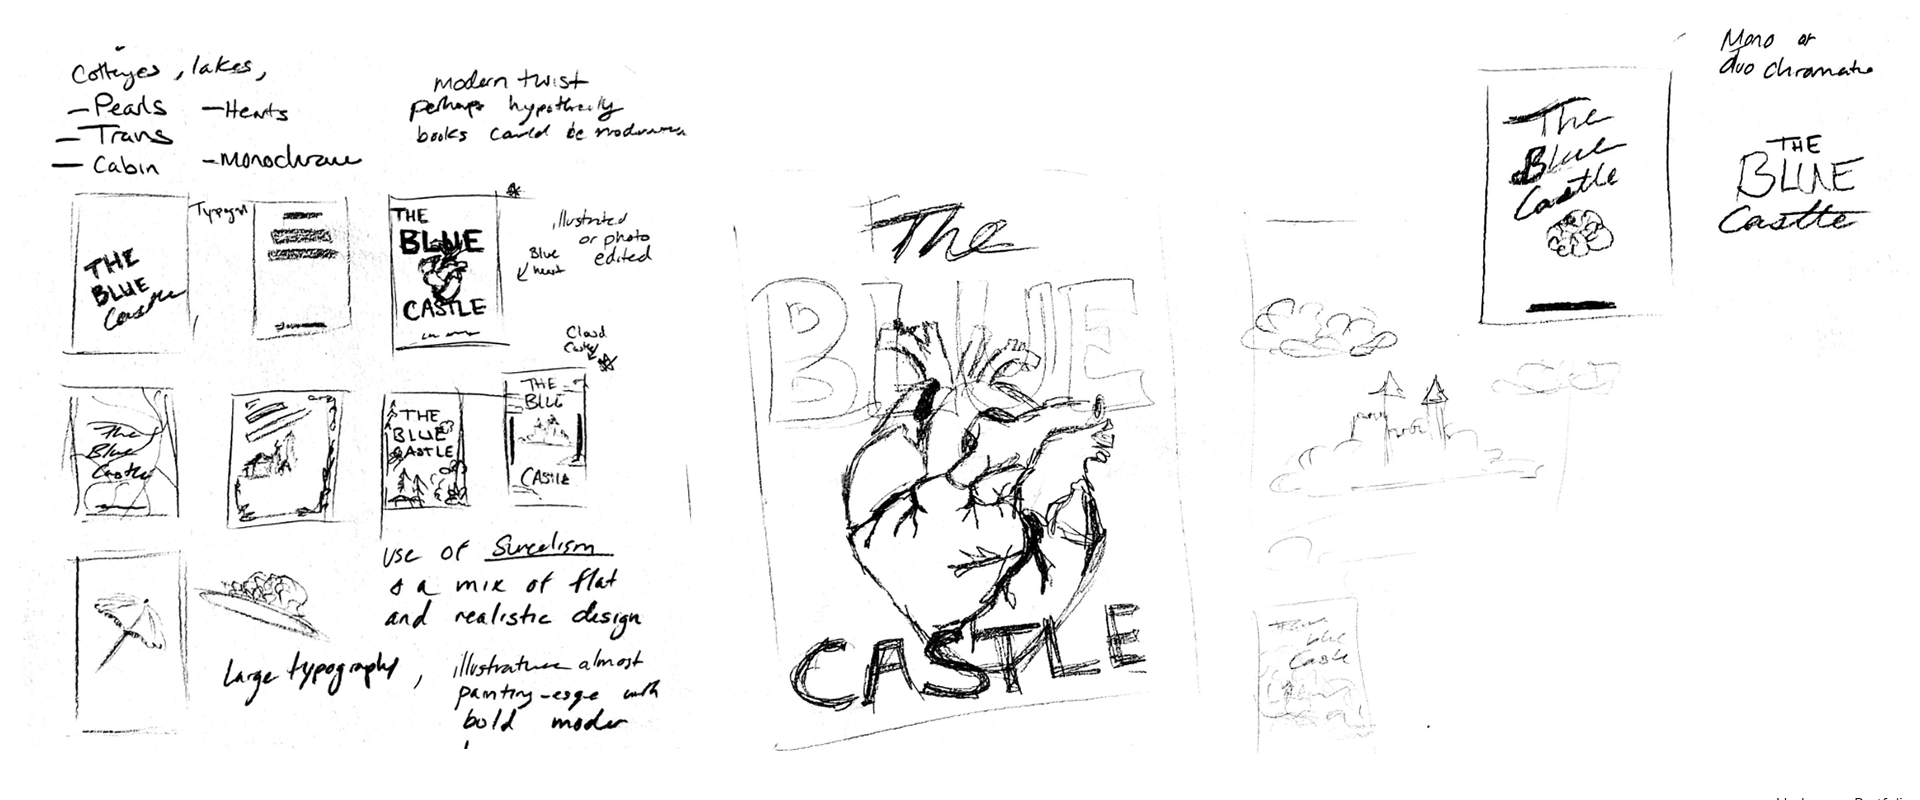 Cottages, lakes,
- Pearls - Hearts
- Trans
- Cabin - Monochrome
modern twist
perhaps
books could be
Typogra
THE
BLUE
Castle
THE
BLUE
CASTLE
illustrated
or photo
edited
Blue
heart
Cloud
Castle
The
Blue
Castle
THE
BLUE
CASTLE
THE
BLUE
CASTLE
use of Surealism
& a mix of flat
and realistic design
Large typography,
illustrature almost
painting-esqe with
bold moder
The
BLUE
CASTLE
The
Blue
Castle
Mono or
duo chromatic
THE
BLUE
Castle
The
blue
Castle